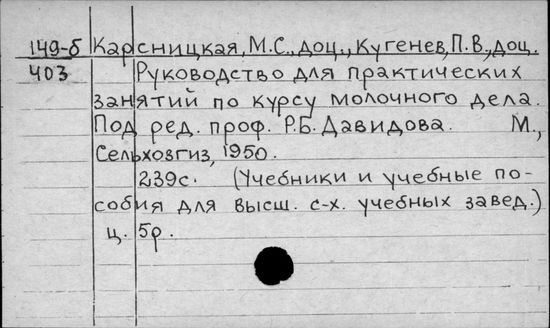 149-б Карсницкая, М.С., доц., Кугенев, П.В., доц.
403 Руководство для практических
занятий по курсу молочного дела.
Под ред. проф. Р.Б. Давидова. М.,
Сельхозгиз, 1950.
239с. (Учебники и учебные по-
собия для высш. с-х. учебных завед.)
ц. 5р.